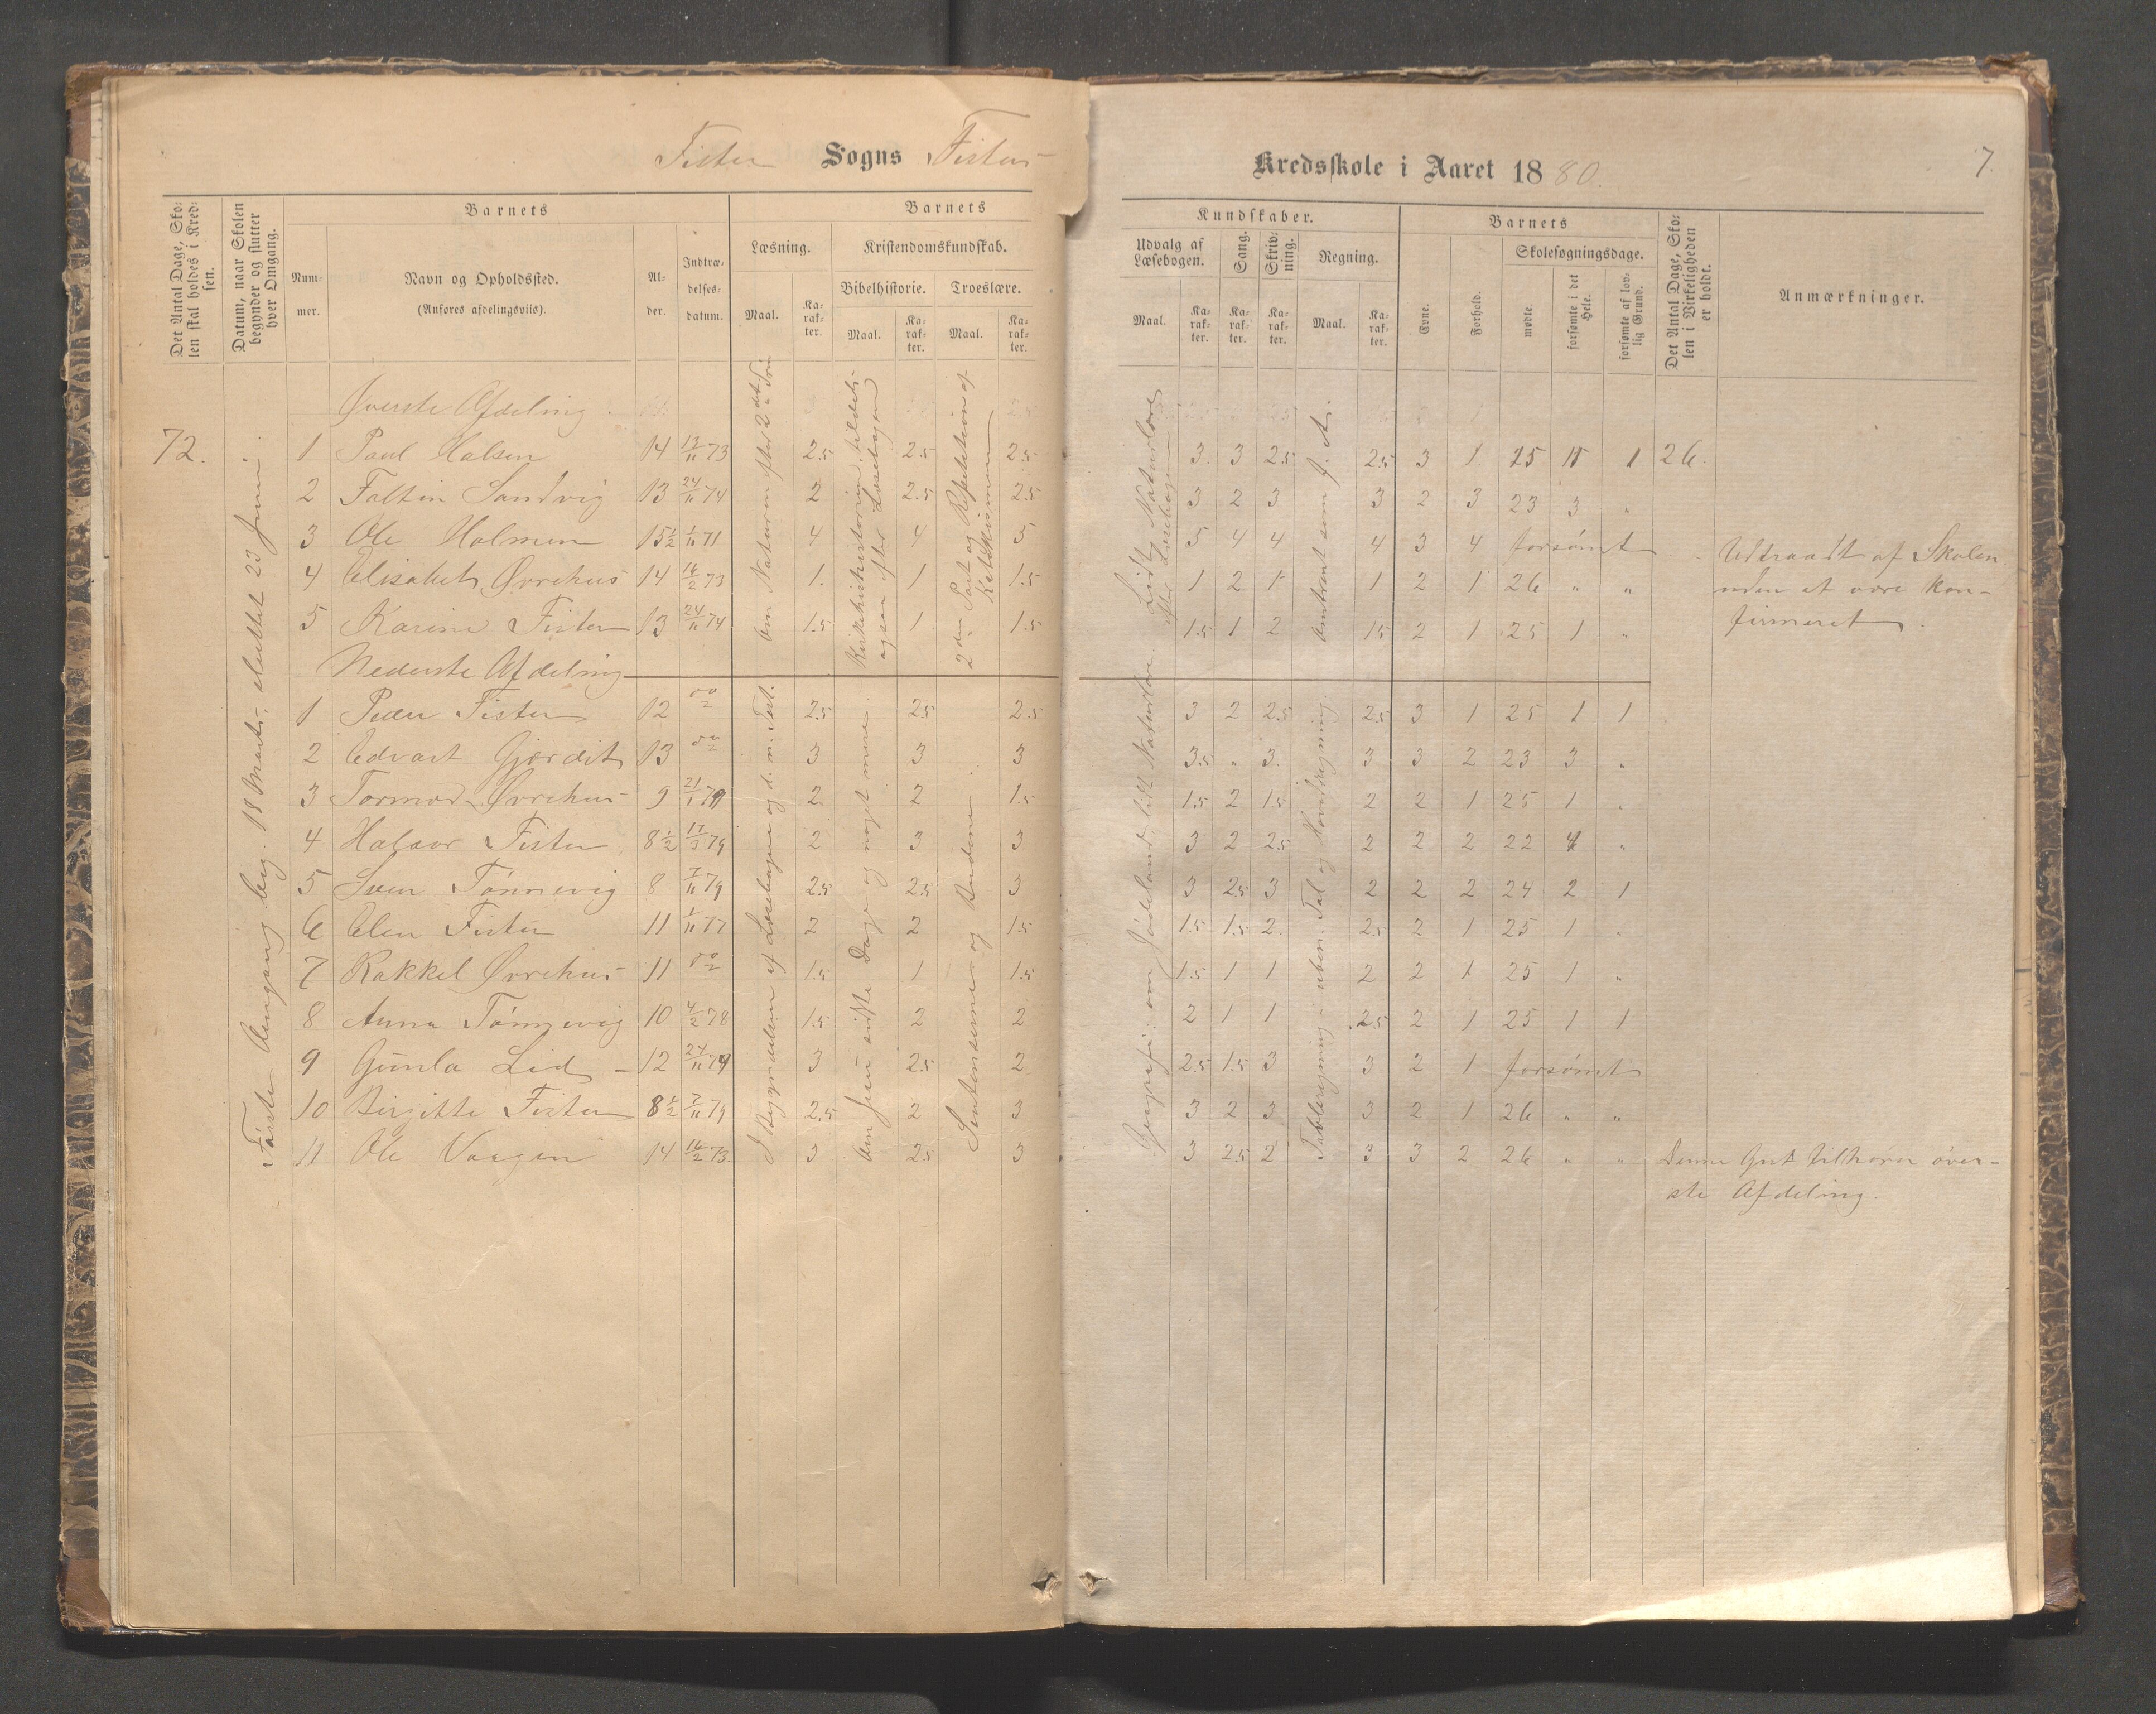 Fister Sogns Fister
Kredsskole i Aaret 1880. 7.
Det Antal Dage, Skolen skal holdes i Kredsen.
Datum, naar Skolen begynder og slutter hver Omgang.
Barnets
Nummer.
Navn og Opholdssted.
(Anføres afdelingsviis).
Alder.
Indtrædelsesdatum.
Barnets
Læsning.
Maal.
Karakter.
Kristendomskundskab.
Bibelhistorie.
Maal.
Karakter.
Troeslære.
Maal.
Karakter.
Kundskaber.
Udvalg af Læsebogen.
Maal.
Karakter.
Sang.
Karakter.
Skrivning.
Karakter.
Regning.
Maal.
Karakter.
Barnets
Evne.
Forhold.
Skolesøgningsdage.
mødte.
forsømte i det Hele.
forsømte af lovlig Grund.
Det Antal Dage, Skolen i Virkeligheden er holdt.
Anmærkninger.
72.
Første Omgang beg. 18 Marts, sluttet 23 Juni.
Øverste Afdeling.
1 Paul Halsen 14 13/11 73 2.5 2.5 2.5 3. 3 2.5 2.5 3 1. 15 11 1 26.
2 Faltin Sandvig 13 24/11 74 2 2.5 2.5 3 2 3 3 2 3 23 3 "
3 Ole Holmen 15½ 1/11 71 4 4 3 5 4 4 4 3 4 forsømt
4 Elisabet Ørrehus 14 16/2 73 1. 1 1.5 1 2 1 1 2 1 26 " "
5 Karine Fister 13 24/11 74 1.5 1 1.5 1.5 1 2 1.5 2 1 25 1 "
Om Naturen efter 2det Trin
Kirkehistorien tildels
ogsaa efter Læsebogen
2den Part og Repetition af
Katekismen
Lidt Naturlære
efter Læsebogen
omtrent som f. A.
Udtraadt af Skolen
uden at være kon-
firmeret.
Nederste Afdeling
1 Peder Fister 12 2.5 2.5 2.5 3 2 2.5 2.5 3 1 25 1 1
2 Edvart Gjordit 13 3 3 3 3.5 " 3. 3 3 2 23 3 "
3 Tormod Ørrehus 9 21/1 79 2 2 1.5 1.5 2 1.5 2 2 1 25 1 "
4 Halvor Fister 8½ 17/3 79 2 3 3 3 2 2.5 2 2 2 22 4 "
5 Sven Tønnevig 8 7/11 79 2.5 2.5 3 3 2.5 3 2 2 2 24 2 1
6 Elen Fister 11 1/11 77 2 2 1.5 1.5 1.5 2. 2.5 2 1 25 1 "
7 Rakkel Ørrehus 11 1.5 1 1.5 1.5 1 1 2 2 1 25 1 "
8 Anna Tønnevig 10 4/2 78 1.5 2 2 2 1 1 2.5 2 1 25 1 1
9 Gunla Lid 12 24/11 74 3 2.5 2 2.5 1.5 3 3 2 1 forsømt
10 Birgitte Fister 8½ 7/11 79 2.5 2 3 3 2 3 3 2 1 26 " "
11 Ole Vaagen 14 16/2 73. 3 2.5 3 3 2.5 2 3 3 2 26 " "
I Begyndelsen af Læsebogen og d. n. Test.
Om Jesu sidste Dage og noget mere.
Sentenserne og Budene.
Geografi: om Jødeland, lidt Naturlære.
Tavleregning i uben. Tal og Hovedregning.
Denne Gut tilhører øver-
ste Afdeling.